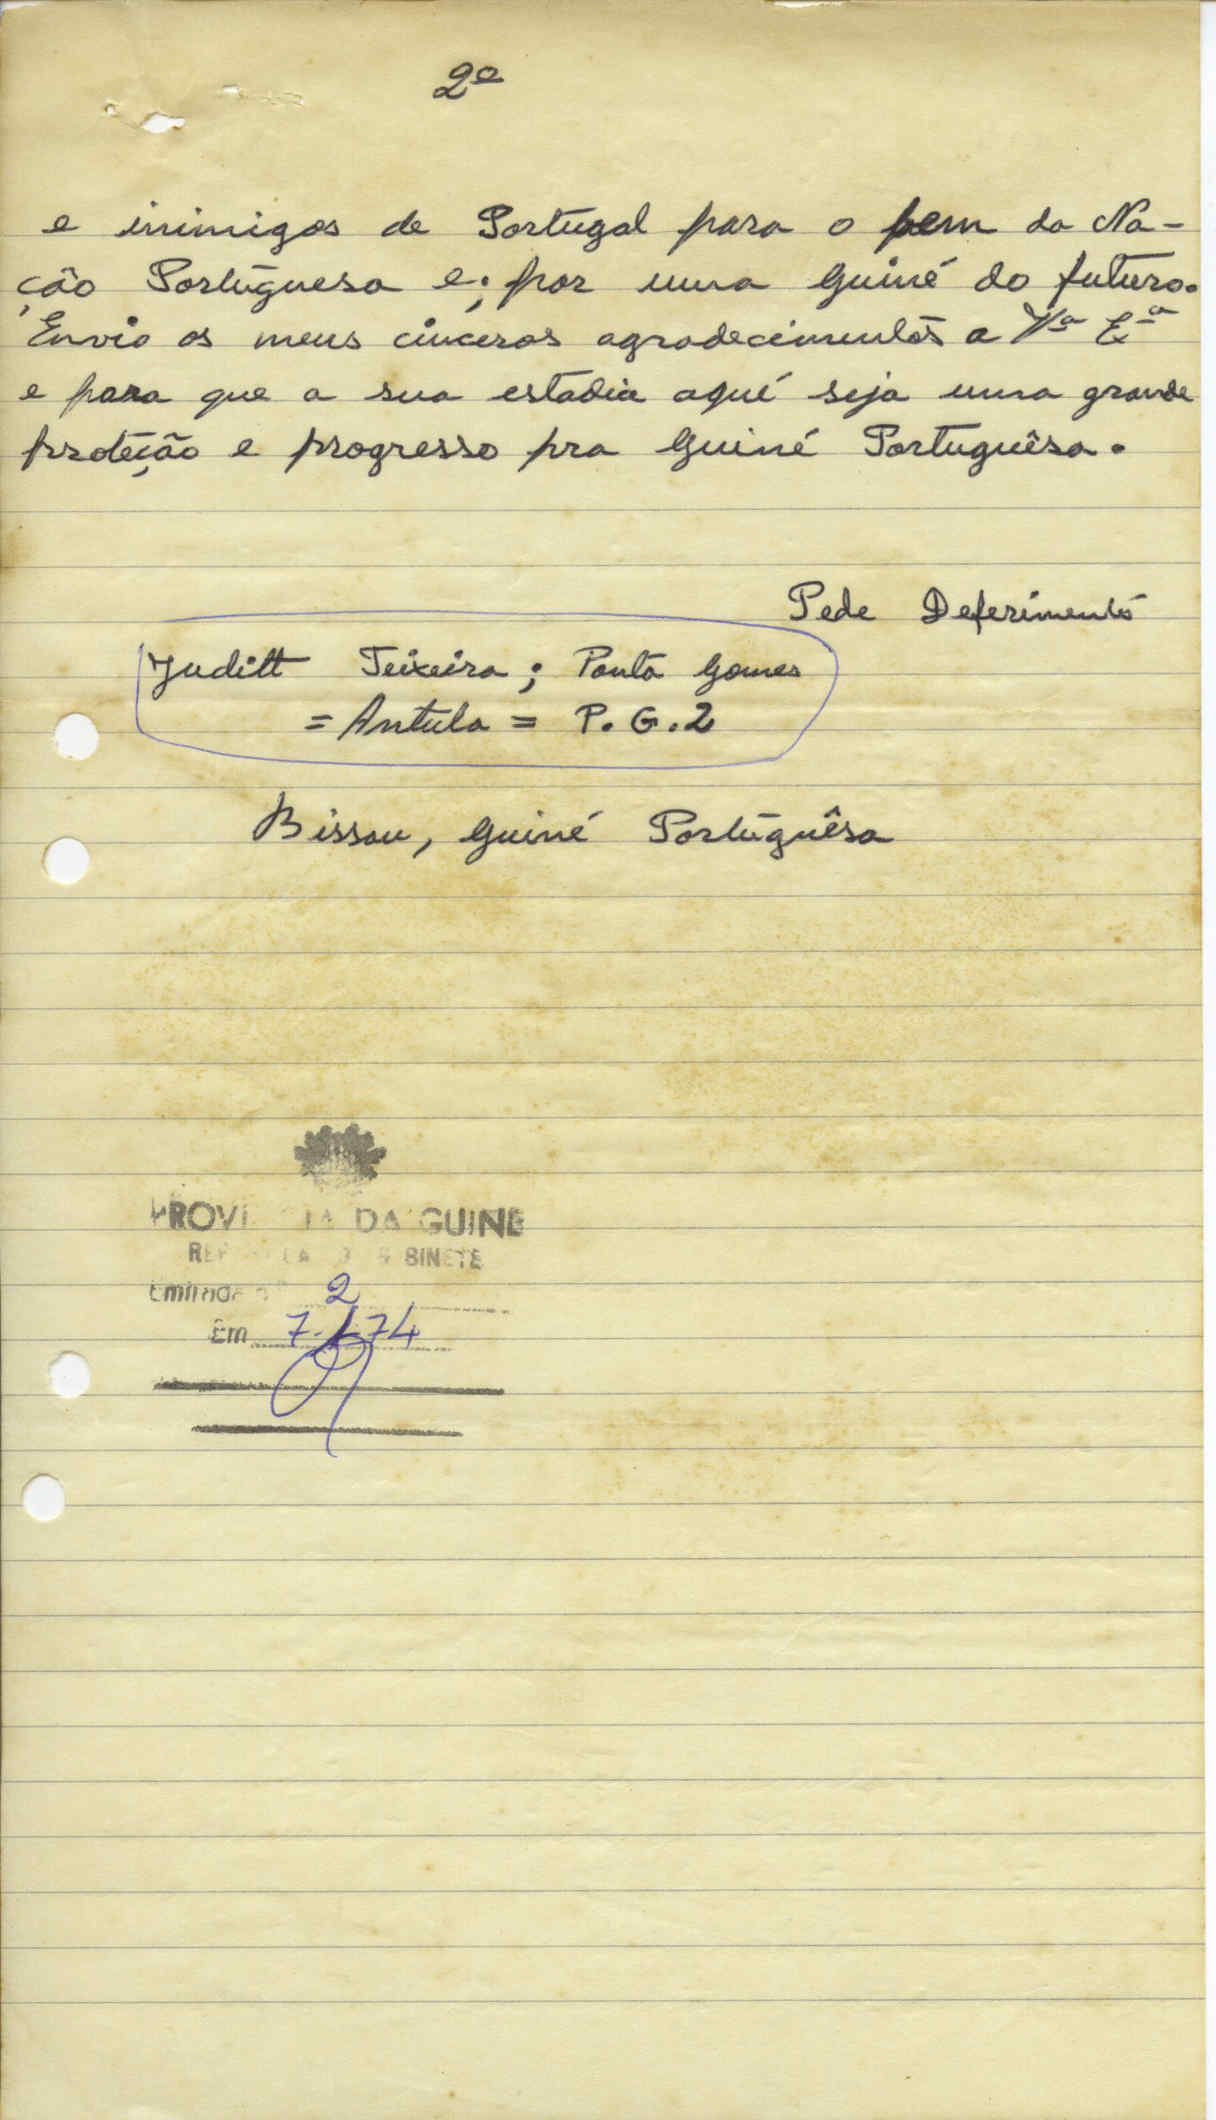 2º
e inimigos de Portugal para o bem da Na-
ção Portuguesa e; por uma Guiné do futuro.
Envio os meus cinceros agradecimentos a Vª Eª
e para que a sua estadia aqué seja uma grande
proteção e progresso pra Guiné Portuguêsa.
Pede Deferimento
Juditt Teixeira; Ponta Gomes
= Antula = P. G. 2
Bissau, Guiné Portuguêsa
PROVINCIA DA GUINE
REPARTIÇÃO DO GABINETE
Entrada nº 2
Em 7.1.74